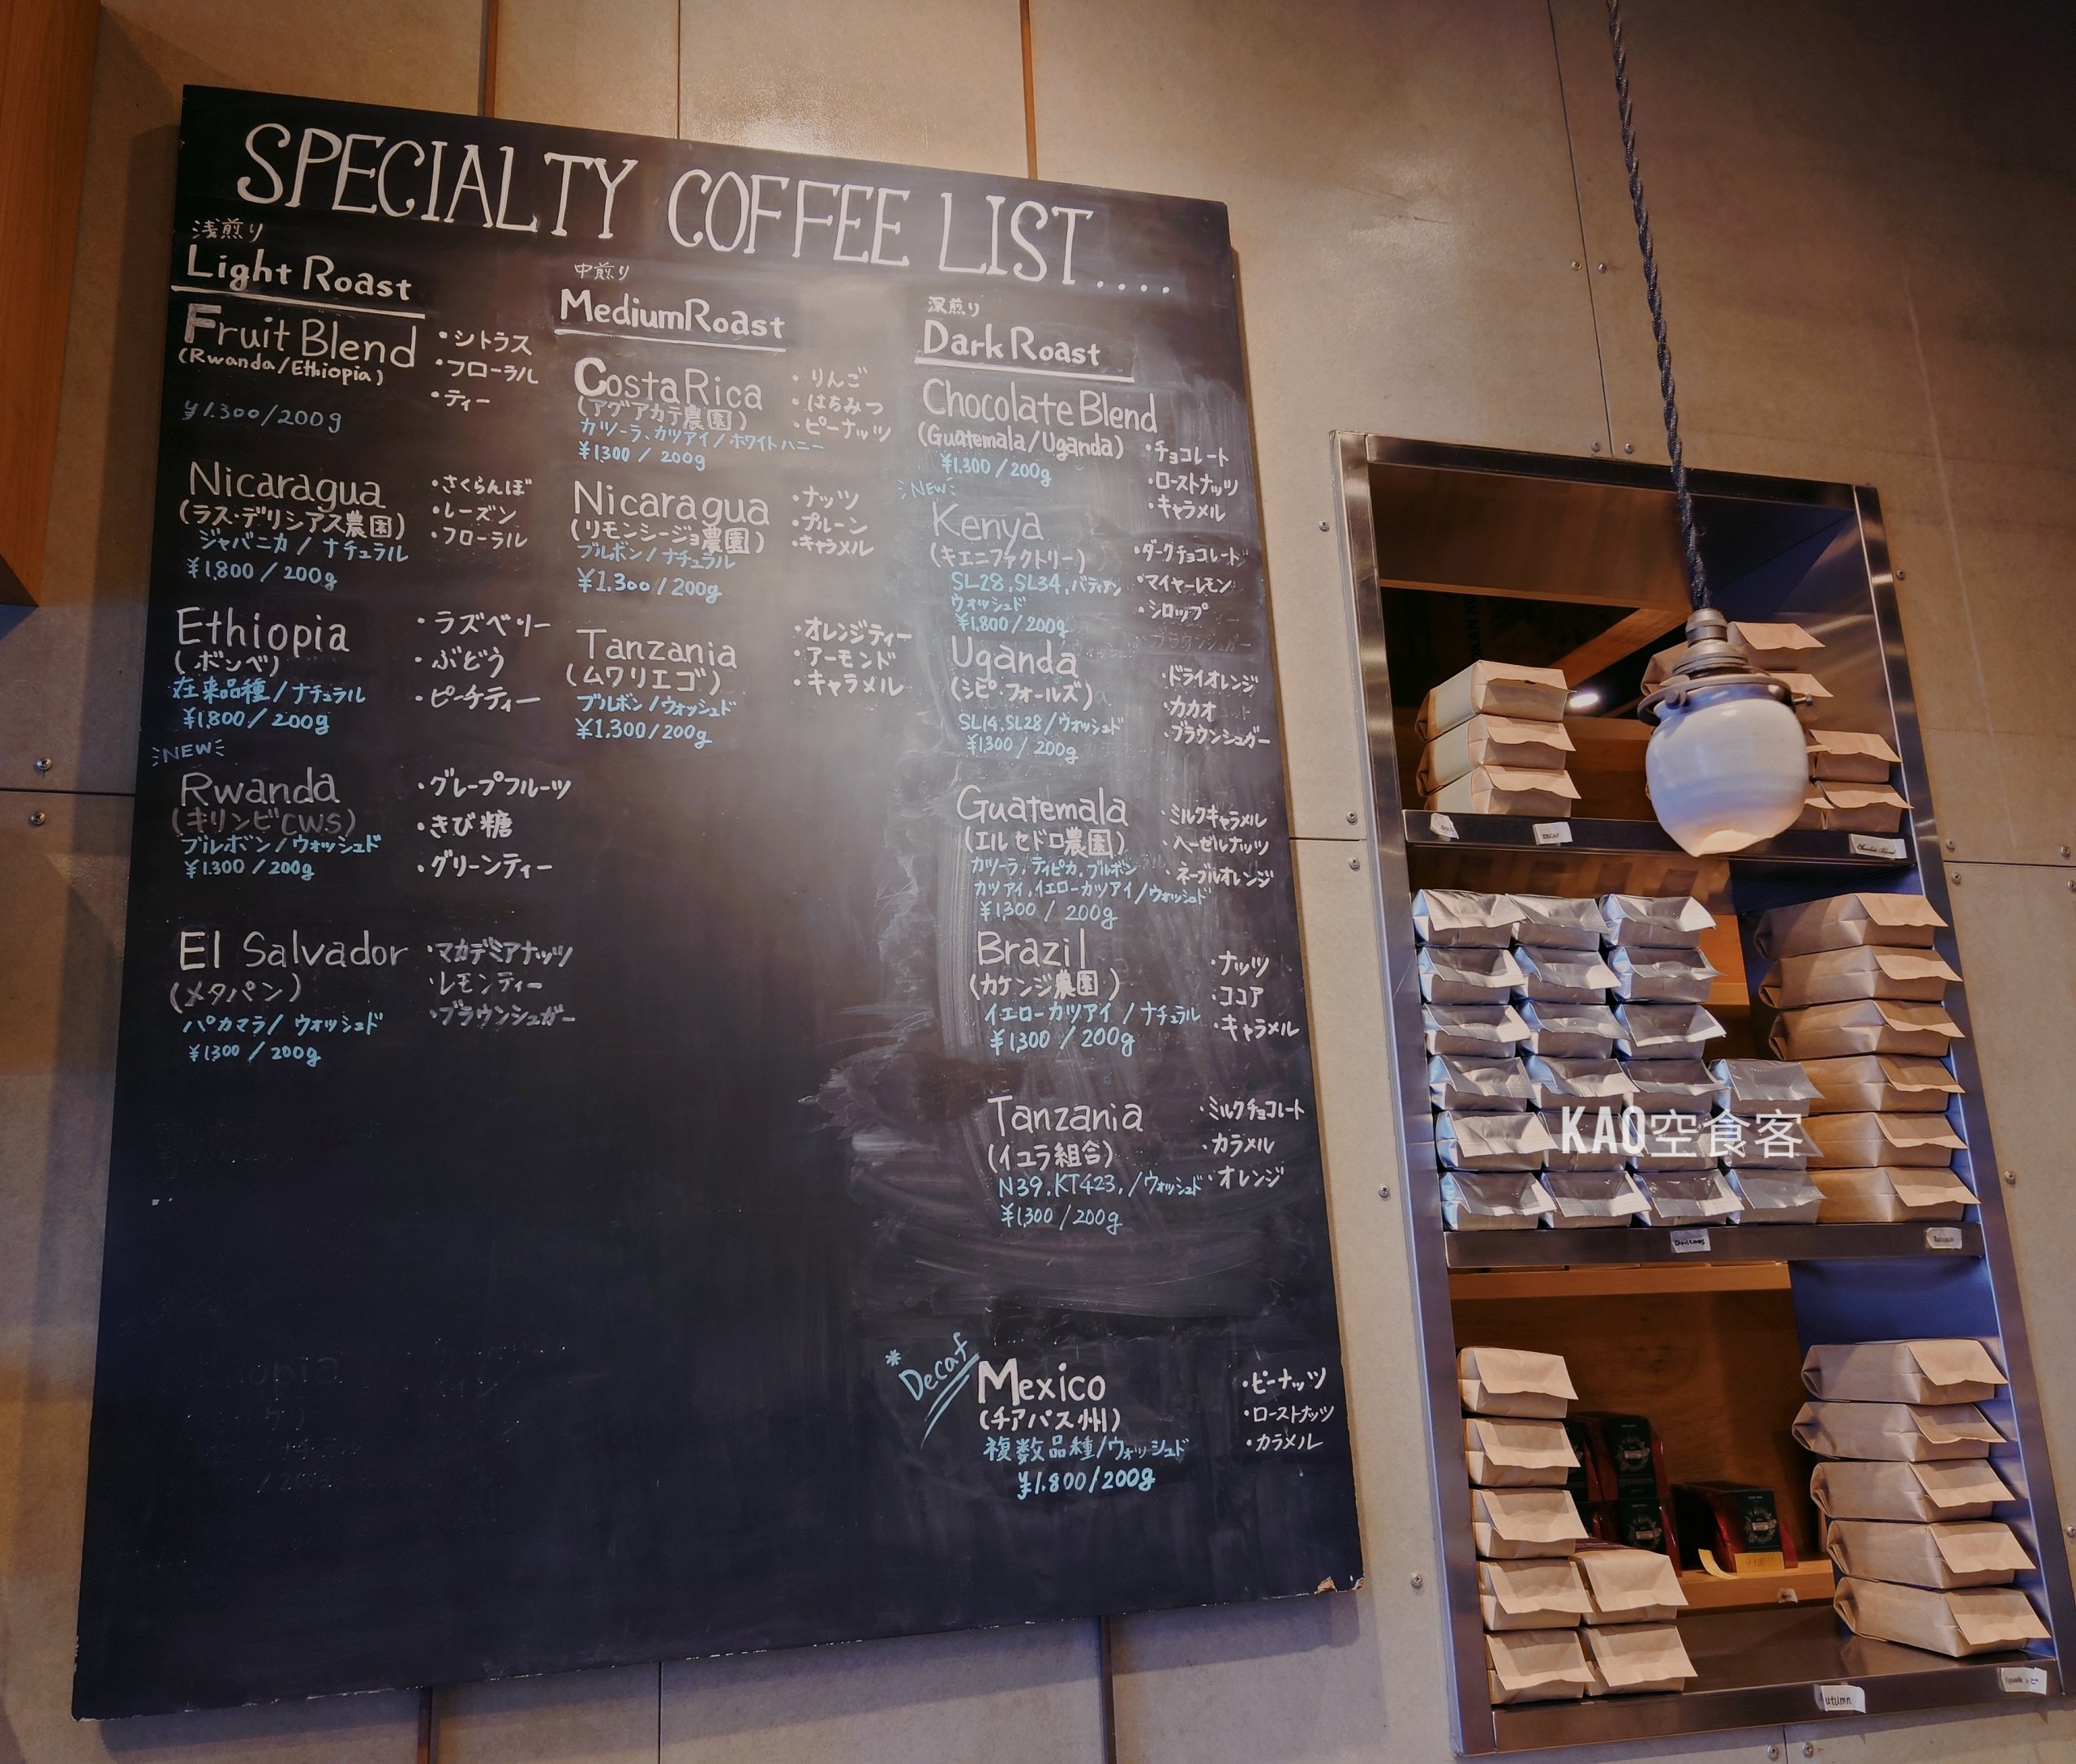 SPECIALTY COFFEE LIST....
浅煎り
Light Roast
Fruit Blend
(Rwanda/Ethiopia)
¥1.300/200g
・シトラス
・フローラル
・ティー
Nicaragua
(ラス・デリシアス農園)
ジャバニカ / ナチュラル
¥1,800 / 200g
・さくらんぼ
・レーズン
・フローラル
Ethiopia
(ボンベ)
在来品種 / ナチュラル
¥1,800 / 200g
・ラズベリー
・ぶどう
・ピーチティー
NEW
Rwanda
(キリンビCWS)
ブルボン / ウォッシュド
¥1.300 / 200g
・グレープフルーツ
・きび糖
・グリーンティー
El Salvador
(メタパン)
パカマラ / ウォッシュド
¥1300 / 200g
・マカデミアナッツ
・レモンティー
・ブラウンシュガー
中煎り
Medium Roast
Costa Rica
(アグアカテ農園)
カツーラ、カツアイ / ホワイトハニー
¥1300 / 200g
・りんご
・はちみつ
・ピーナッツ
Nicaragua
(リモンシージョ農園)
ブルボン / ナチュラル
¥1.300 / 200g
・ナッツ
・プルーン
・キャラメル
Tanzania
(ムワリエゴ)
ブルボン / ウォッシュド
¥1,300/200g
・オレンジティー
・アーモンド
・キャラメル
深煎り
Dark Roast
Chocolate Blend
(Guatemala/Uganda)
¥1,300 / 200g
・チョコレート
・ローストナッツ
・キャラメル
NEW
Kenya
(キエニファクトリー)
SL28,SL34,バティアン
ウォッシュド
¥1,800/200g
・ダークチョコレート
・マイヤーレモン
・シロップ
Uganda
(シピ・フォールズ)
SL14,SL28/ウォッシュド
¥1,300 / 200g
・ドライオレンジ
・カカオ
・ブラウンシュガー
Guatemala
(エルセドロ農園)
カツーラ, ティピカ, ブルボン
カツアイ,イエローカツアイ/ウォッシュド
¥1,300 / 200g
・ミルクキャラメル
・ヘーゼルナッツ
・ネーブルオレンジ
Brazil
(カケンジ農園)
イエローカツアイ / ナチュラル
¥1300 / 200g
・ナッツ
・ココア
・キャラメル
Tanzania
(イユラ組合)
N39,KT423, / ウォッシュド
¥1300 / 200g
・ミルクチョコレート
・カラメル
・オレンジ
*Decaf
Mexico
(チアパス州)
複数品種/ウォッシュド
¥1.800/200g
・ピーナッツ
・ローストナッツ
・カラメル
DECAF
KAO空食客
utumn